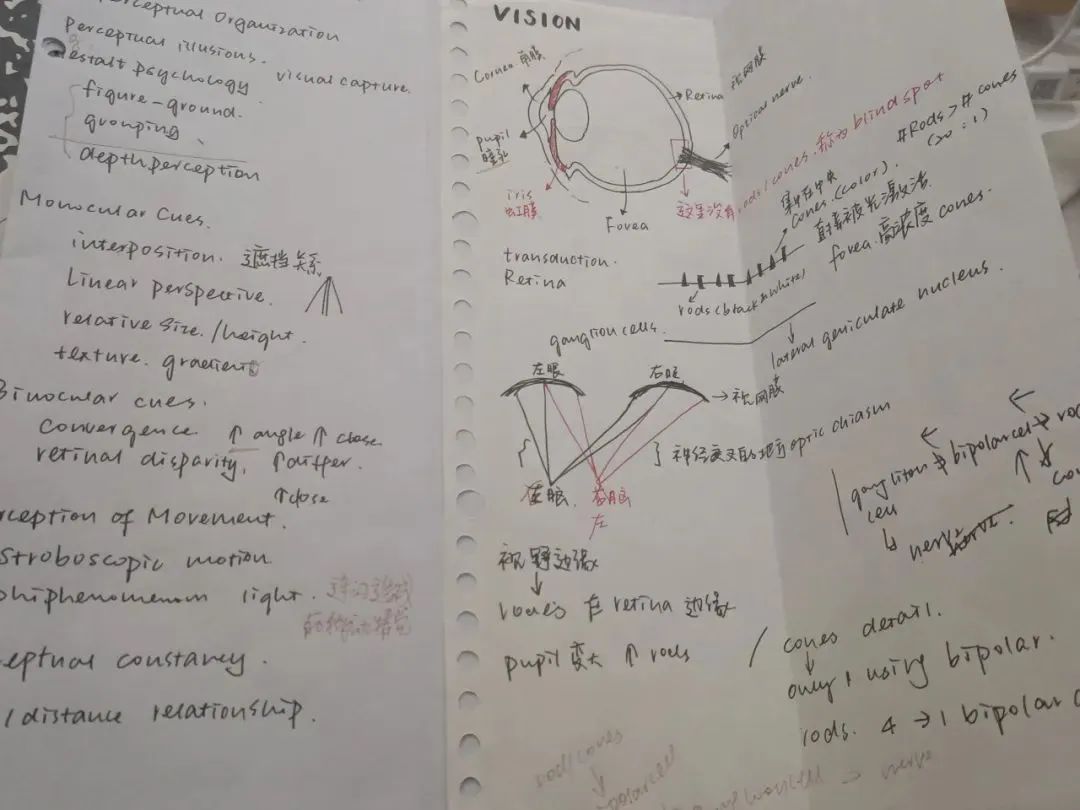 Perceptual Organization
perceptual illusions.
Gestalt psychology visual capture.
figure-ground.
grouping
depth perception
Monocular Cues.
interposition. 遮挡关系
Linear perspective.
relative size./height.
texture. gradient
Binocular cues.
convergence ↑ angle ↑ close
retinal disparity, ↑differ.
↑close
rception of Movement.
Stroboscopic motion
phiphenomenom light.
eptual constancy.
/distance relationship.
VISION
Cornea 角膜
pupil
瞳孔
iris
虹膜
Fovea
Retina 视网膜
Optical nerve.
这里没有rods/cones.称为blind spot
#Rods > # cones
(20:1)
transduction.
Retina
集中在中央
cones.(color).
直接被光激活
rods (black&white)
fovea.高浓度 cones.
ganglion cells.
lateral geniculate nucleus.
左眼 右眼
→视网膜
}神经交叉的地方 optic chiasm
左眼. 右眼
左
gangliton → bipolarcel → ro
cell
nerve
视野边缘
↓
rones 在 retina 边缘
pupil 变大 ↑ rods
/ cones detail.
↓
only 1 using bipolar.
rods. 4 → 1 bipolar c
rod/cones
→ nerve